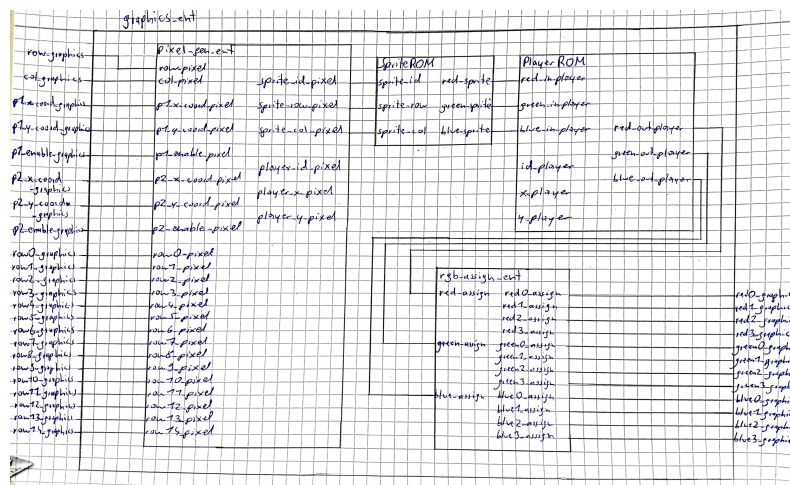 graphics_ent
row_graphics
col_graphics
p1_x_coord_graphics
p1_y_coord_graphics
p1_enable_graphics
p2_x_coord
_graphics
p2_y_coord
_graphics
p2_enable_graphics
row0_graphics
row1_graphics
row2_graphics
row3_graphics
row4_graphics
row5_graphics
row6_graphics
row7_graphics
row8_graphics
row9_graphic
row10_graphics
row11_graphics
row12_graphics
row13_graphics
row14_graphics
pixel_gen_ent
row_pixel
col_pixel
p1_x_coord_pixel
p1_y_coord_pixel
p1_enable_pixel
p2_x_coord_pixel
p2_y_coord_pixel
p2_enable_pixel
row0_pixel
row1_pixel
row2_pixel
row3_pixel
row4_pixel
row5_pixel
row6_pixel
row7_pixel
row8_pixel
row9_pixel
row10_pixel
row11_pixel
row12_pixel
row13_pixel
row14_pixel
sprite_id_pixel
sprite_row_pixel
sprite_col_pixel
player_id_pixel
player_x_pixel
player_y_pixel
SpriteROM
sprite_id red_sprite
sprite_row green_sprite
sprite_col blue_sprite
PlayerROM
red_in_player
green_in_player
blue_in_player
id_player
x_player
y_player
red_out_player
green_out_player
blue_out_player
rgb_assign_ent
red_assign
green_assign
blue_assign
red0_assign
red1_assign
red2_assign
red3_assign
green0_assign
green1_assign
green2_assign
green3_assign
blue0_assign
blue1_assign
blue2_assign
blue3_assign
red0_graphic
red1_graphic
red2_graphi
red3_graphi
green0_graph
green1_graph
green2_graph
green3_graph
blue0_graph
blue1_graph
blue2_graphi
blue3_graphi